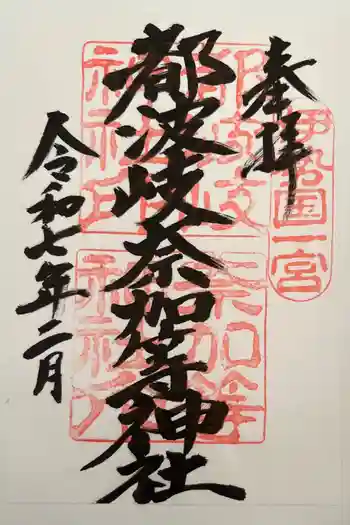 奉拝
伊勢国一宮
都波岐奈加等神社
都波岐神社印
奈加等神社印
令和七年二月